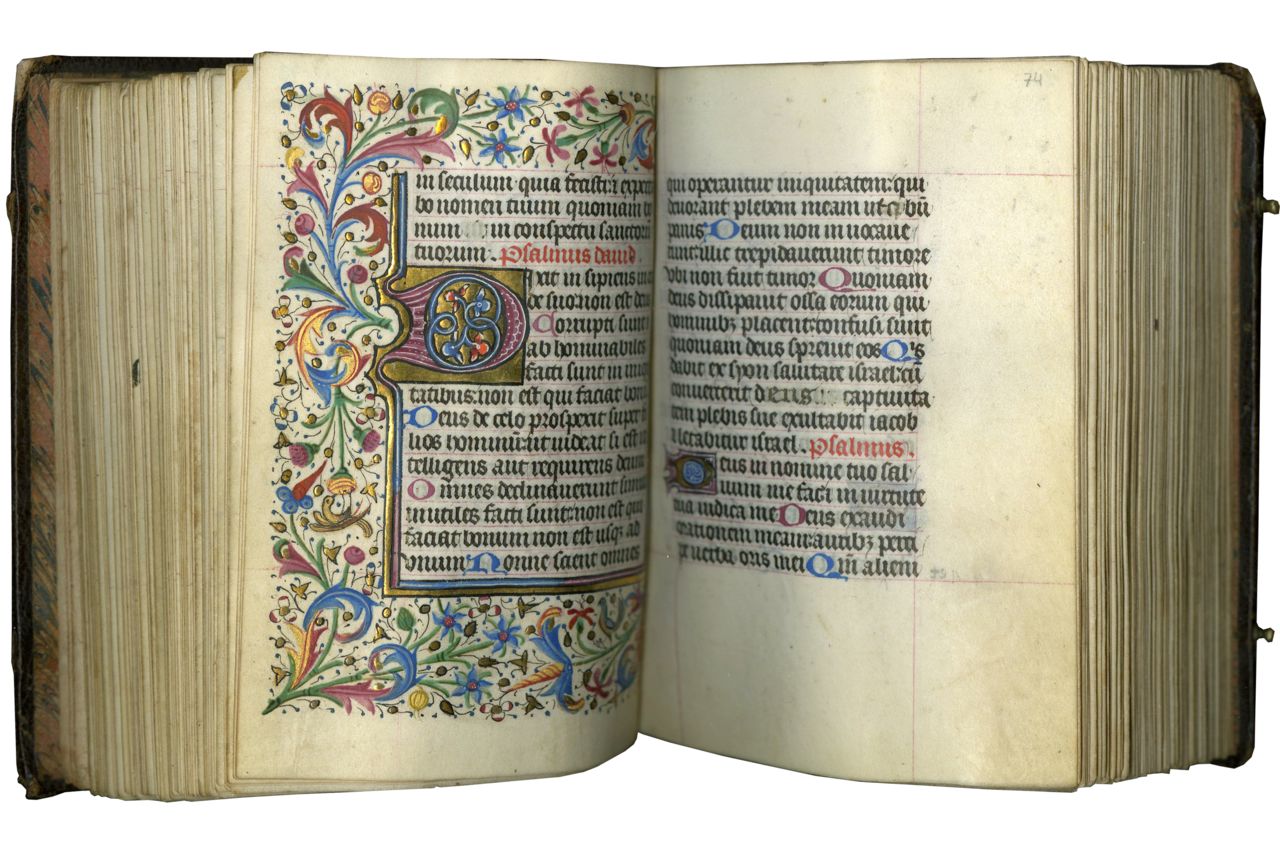 in seculum quia fecisti et expecta
bo nomen tuum quoniam bo
num in conspectu sanctorū
tuorum. Psalmus david.
Dixit in sipiens in c
de suo non est deus
Corrupti sunt
ab hominabiles
facti sunt in iniqui
tatibus: non est qui faciat bonū
Deus de celo prospexit super fi
lios hominū: ut videat si est in
telligens aut requirens deum
Omnes declinaverunt simul
inutiles facti sunt: non est qui
faciat bonum non est usqꝫ ad
unum Nonne scient omnes
74
qui operantur iniquitatem: qui
devorant plebem meam ut cibū
panis Deum non in vocave
runt: illic trepidaverunt timore
ubi non fuit timor Quoniam
deus dissipavit ossa eorum qui
hominibꝫ placent: confusi sunt
quoniam deus sprevit eos Qis
dabit ex syon salutare israel: cū
converterit deus captivita
tem plebis sue exultabit iacob
et letabitur israel. Psalmus.
Deus in nomine tuo sal
vum me fac: et in virtute
tua iudica me Deus exaudi
orationem meam: auribꝫ perci
pe verba oris mei Qm̄ alieni